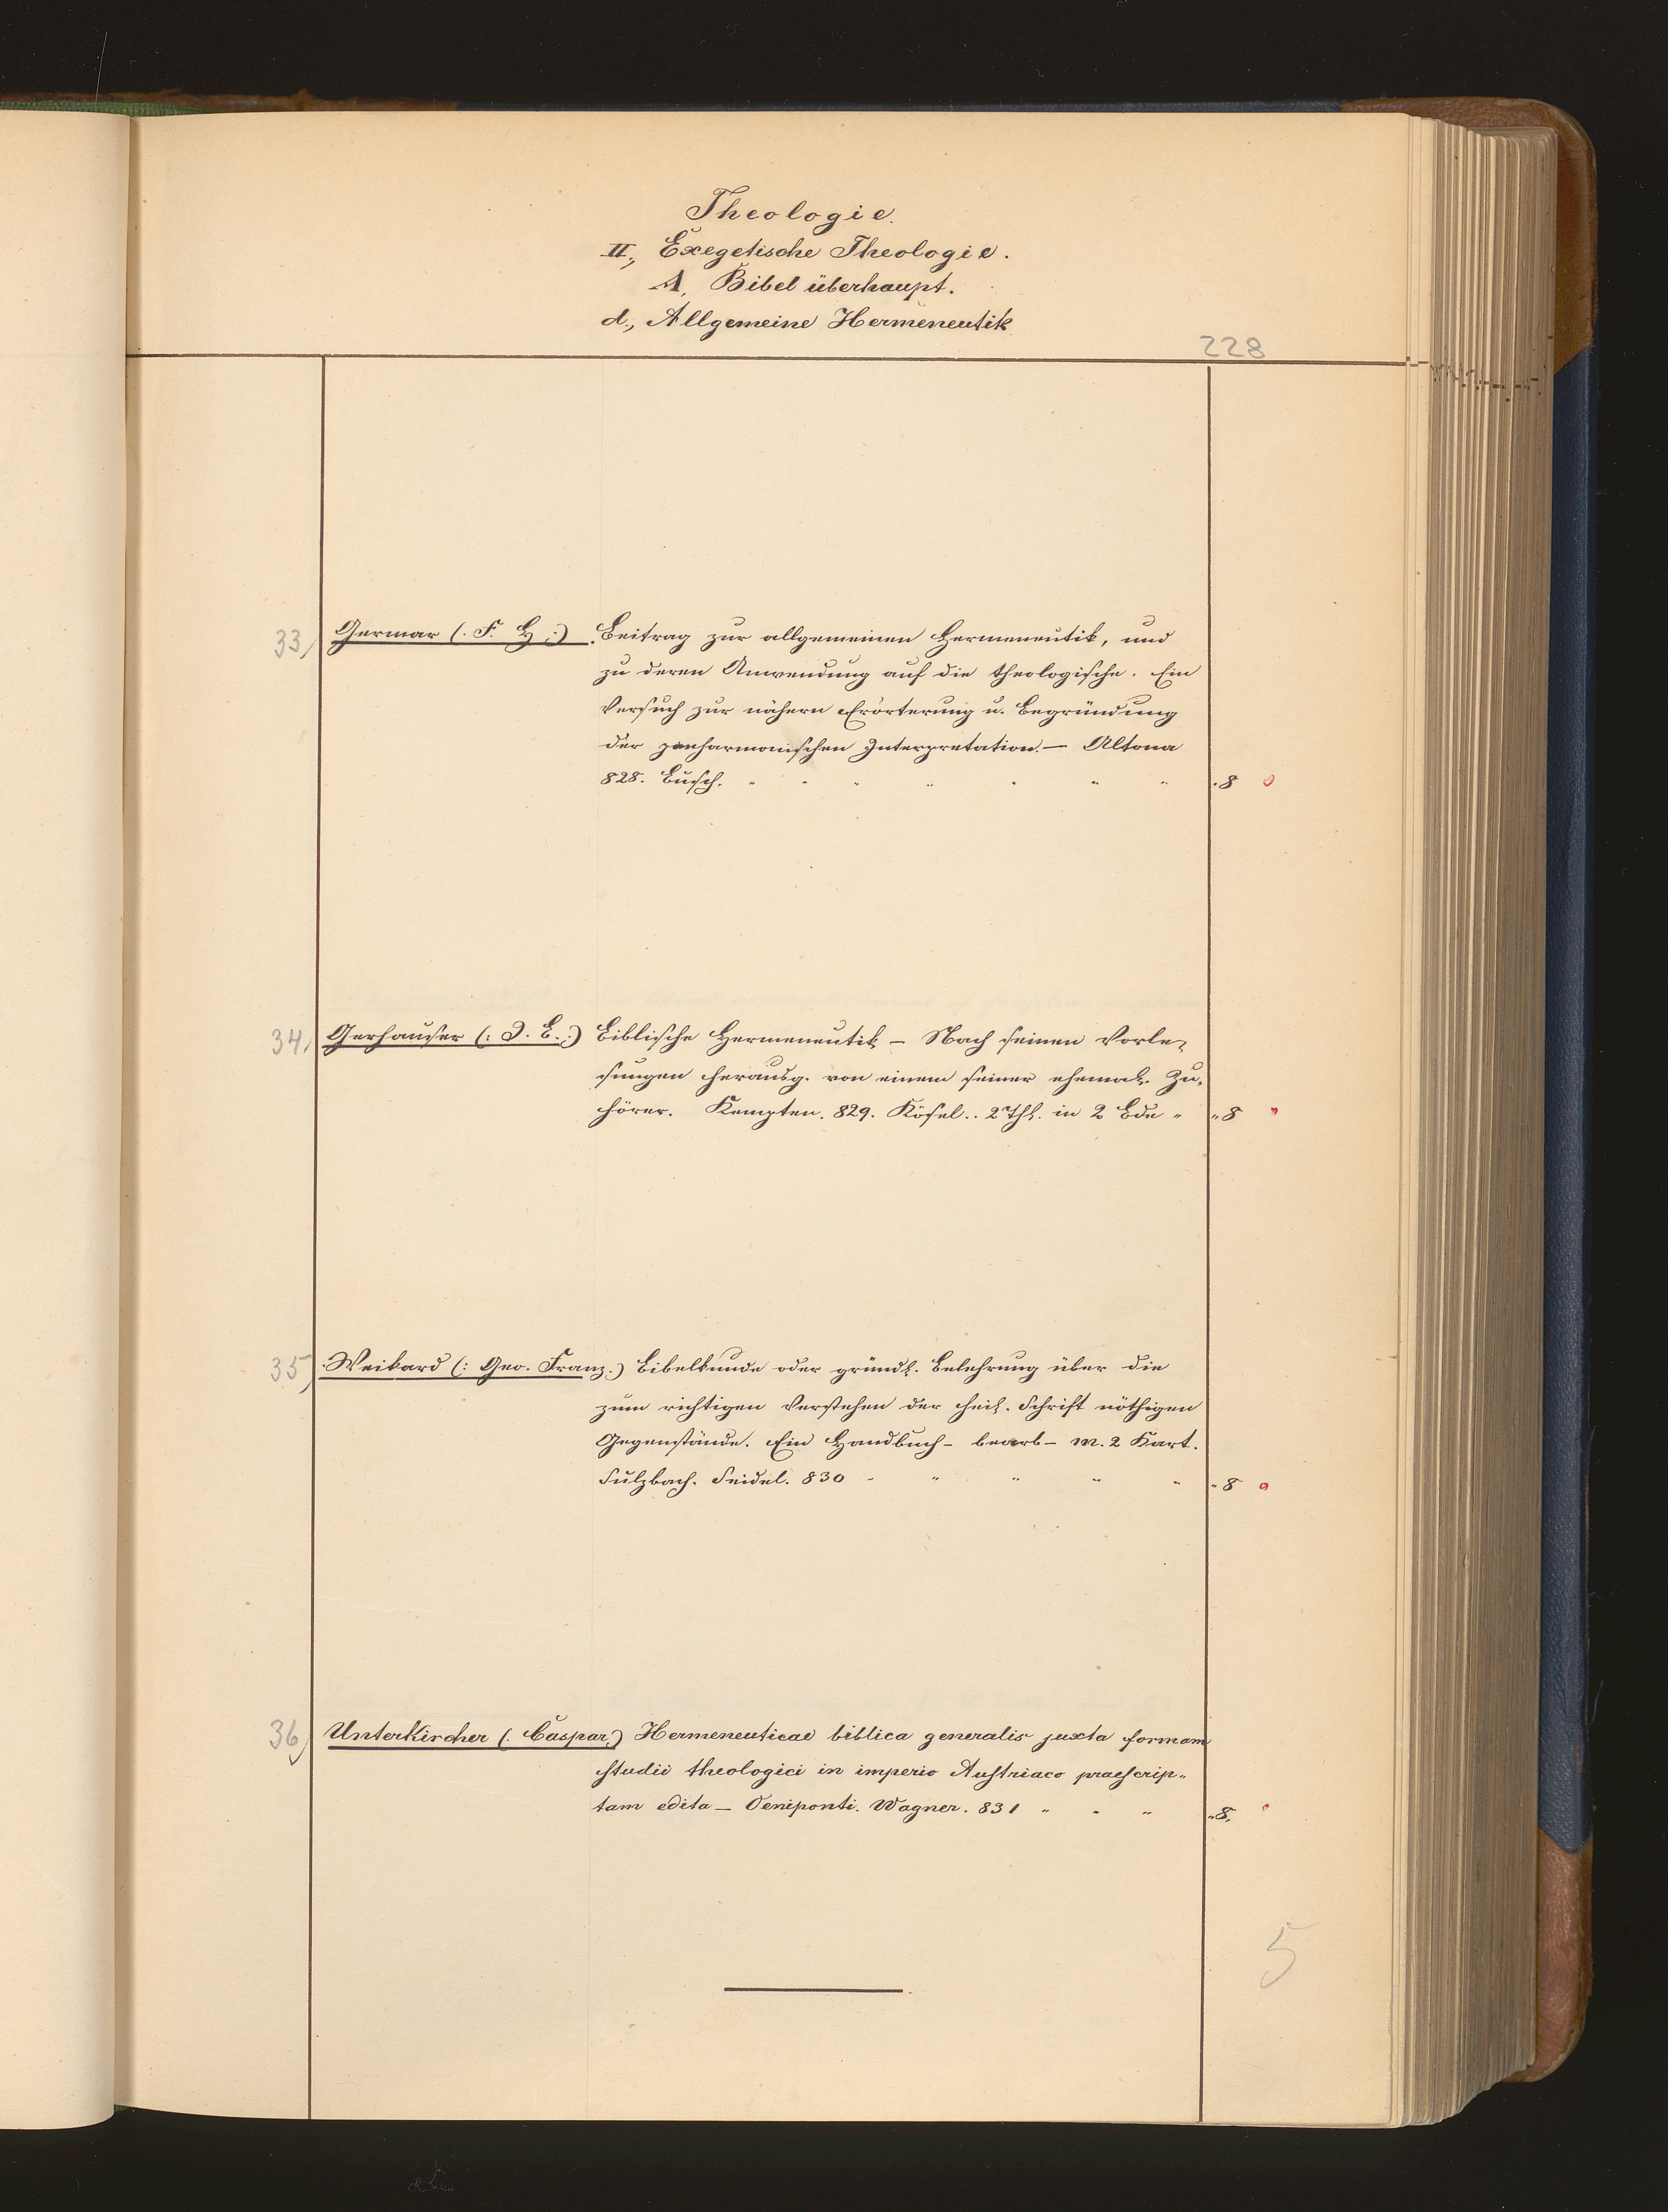 Theologie.
II., Exegetische Theologie.
A, Bibel überhaupt.
d., Allgemeine Hermeneutik
228
33, Germar (: F. H :) Beitrag zur allgemeinen Hermeneutik, und
zu deren Anwendung auf die theologische. Ein
Versuch zur nähern Erörterung u. Begründung
der panharmonischen Interpretation. — Altona
828. Busch. " " " " " " " " 8 0
34, Gerhauser (: J. B. :) Biblische Hermeneutik – Nach seinen Vorle-
sungen herausg. von einem seiner ehemal. Zu-
hörer. Kempten. 829. Kösel.. 2 Thl. in 2 Bde " " 8 "
35, Weikard (: Geo. Franz :) Bibelkunde oder gründl. Belehrung über die
zum richtigen Verstehen der heil. Schrift nöthigen
Gegenstände. Ein Handbuch – bearb – m. 2 Kart.
Sulzbach. Seidel. 830 " " " " " " 8 0
36, Unterkircher (: Caspar :) Hermeneuticae biblica generalis juxta formam
studii theologici in imperio Austriaco praescrip-
tam edita – Oeniponti. Wagner. 831 " " " " 8.
5